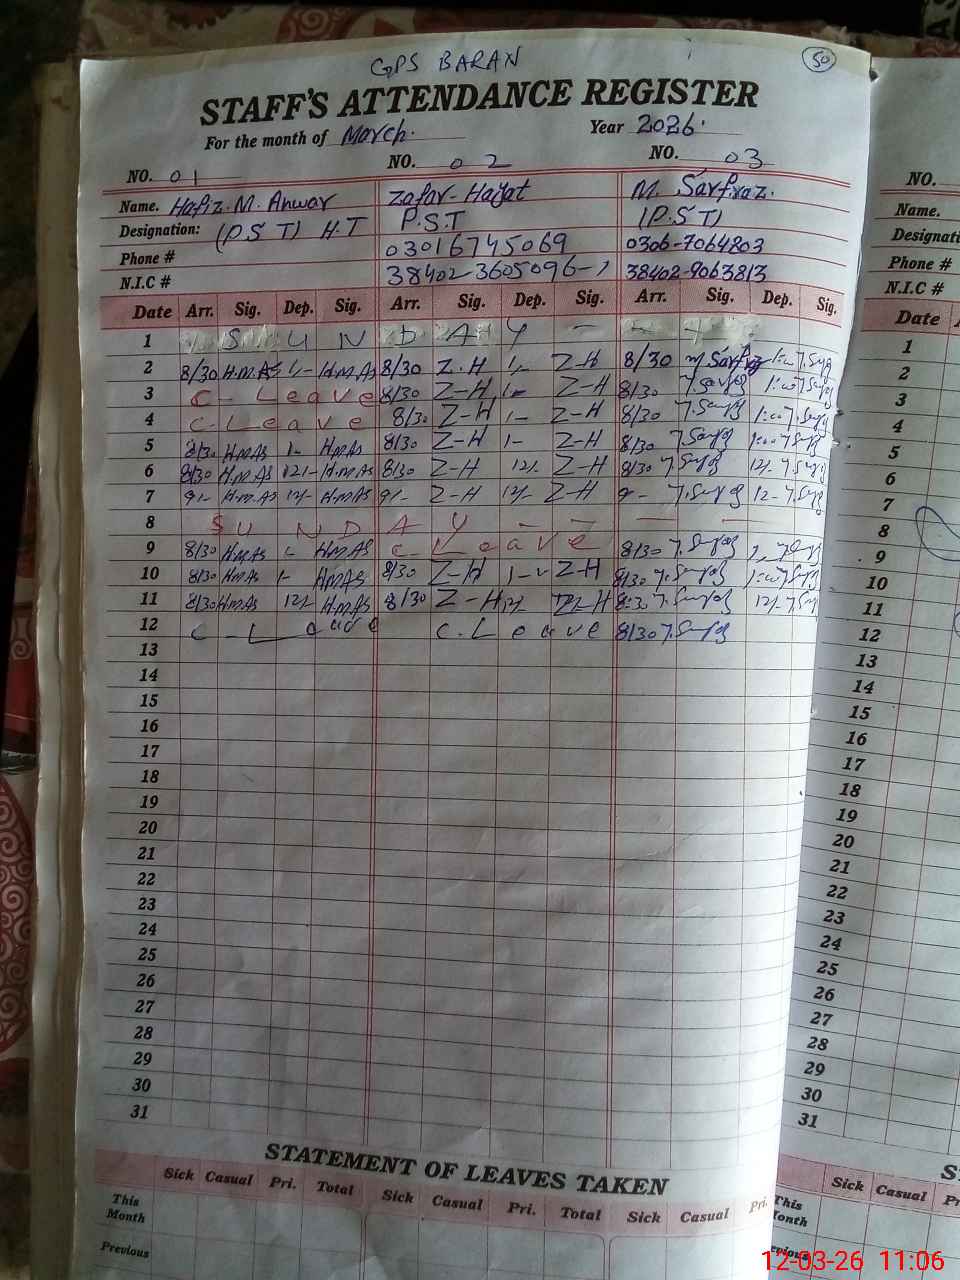 GPS BARAN
50
STAFF'S ATTENDANCE REGISTER
For the month of March. Year 2026.
NO. 01 NO. 02 NO. 03
Name. Hafiz. M. Anwar Zafar-Hayat M. Sarfraz.
Designation: (P.S.T) H.T P.S.T (P.S.T)
Phone # 03016745069 0306-7064803
N.I.C # 38402-3605096-1 38402-9063813
Date Arr. Sig. Dep. Sig. Arr. Sig. Dep. Sig. Arr. Sig. Dep. Sig.
1 S U N D A Y -
2 8/30 H.M.AS 1- H.M.AS 8/30 Z.H 1- Z-H 8/30
3 C- Leave 8/30 Z-H 1- Z-H 8/30
4 C Leave 8/30 Z-H 1- Z-H 8/30
5 8/30 HMAS 1- HMAS 8/30 Z-H 1- Z-H 8/30
6 8/30 H.M.AS 12/- H.M.AS 8/30 Z-H 12/- Z-H 8/30 12/-
7 9/- H.M.AS 12/- H.M.AS 9/- Z-H 12/- Z-H 9- 12-
8 SUNDAY - -
9 8/30 H.M.AS 1- HMAS C Leave 8/30
10 8/30 H.M.AS 1- HMAS 8/30 Z-H 1- Z-H 8/30
11 8/30 H.M.AS 12/- H.M.AS 8/30 Z-H 12/- Z-H 8:30 12/-
12 C-Leave C.Leave 8/30
13
14
15
16
17
18
19
20
21
22
23
24
25
26
27
28
29
30
31
STATEMENT OF LEAVES TAKEN
Sick Casual Pri. Total Sick Casual Pri. Total Sick Casual Pri.
This Month
Previous
NO.
Name.
Phone #
N.I.C #
Date
1
2
3
4
5
6
7
8
9
10
11
12
13
14
15
16
17
18
19
20
21
22
23
24
25
26
27
28
29
30
31
Sick Casual
12-03-26 11:06